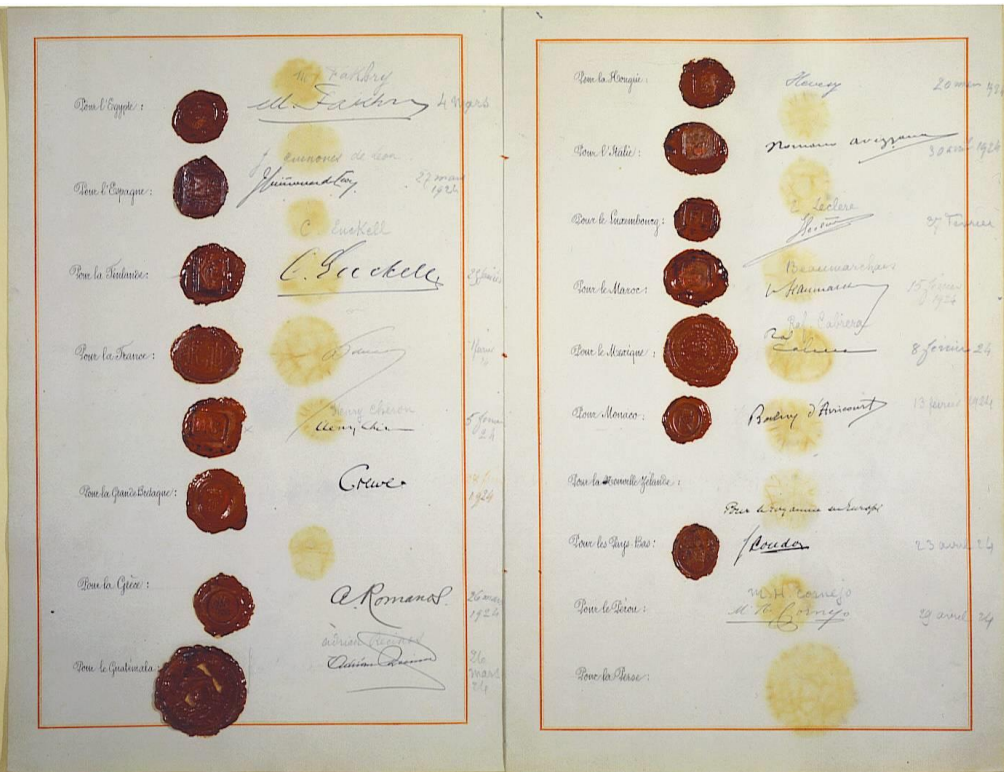 Pour l'Egypte :
M. Fakhry
M. Fakhry
4 mars
Pour l'Espagne :
J. Quinones de Leon
27 mars
1924
Pour la Finlande :
C. Enckell
C. Enckell
Pour la France :
Henry Chéron
Henry Chéron
5
24
Pour la Grande Bretagne :
Crewe
1924
Pour la Grèce :
A. Romanos.
26 mars
1924
Pour le Guatémala :
Adrien Recinos
Adrien Recinos
26
mars
24
Pour la Hongrie :
Hevesy
20 mars 1924
Pour l'Italie :
Romano Avezzana
30 avril 1924
Pour le Luxembourg :
Leclère
février
Pour le Maroc :
Beaumarchais
15 février
1924
Pour le Mexique :
Raf. Cabrera
Raf.
Cabrera
8 février 24
Pour Monaco :
Balny d'Avricourt
13 février 1924
Pour la Nouvelle Zélande :
Pour le royaume en Europe
Pour les Pays-Bas :
J Loudon
23 avril 24
Pour le Pérou :
M. H. Cornejo
M. H. Cornejo
29 avril 24
Pour la Perse :